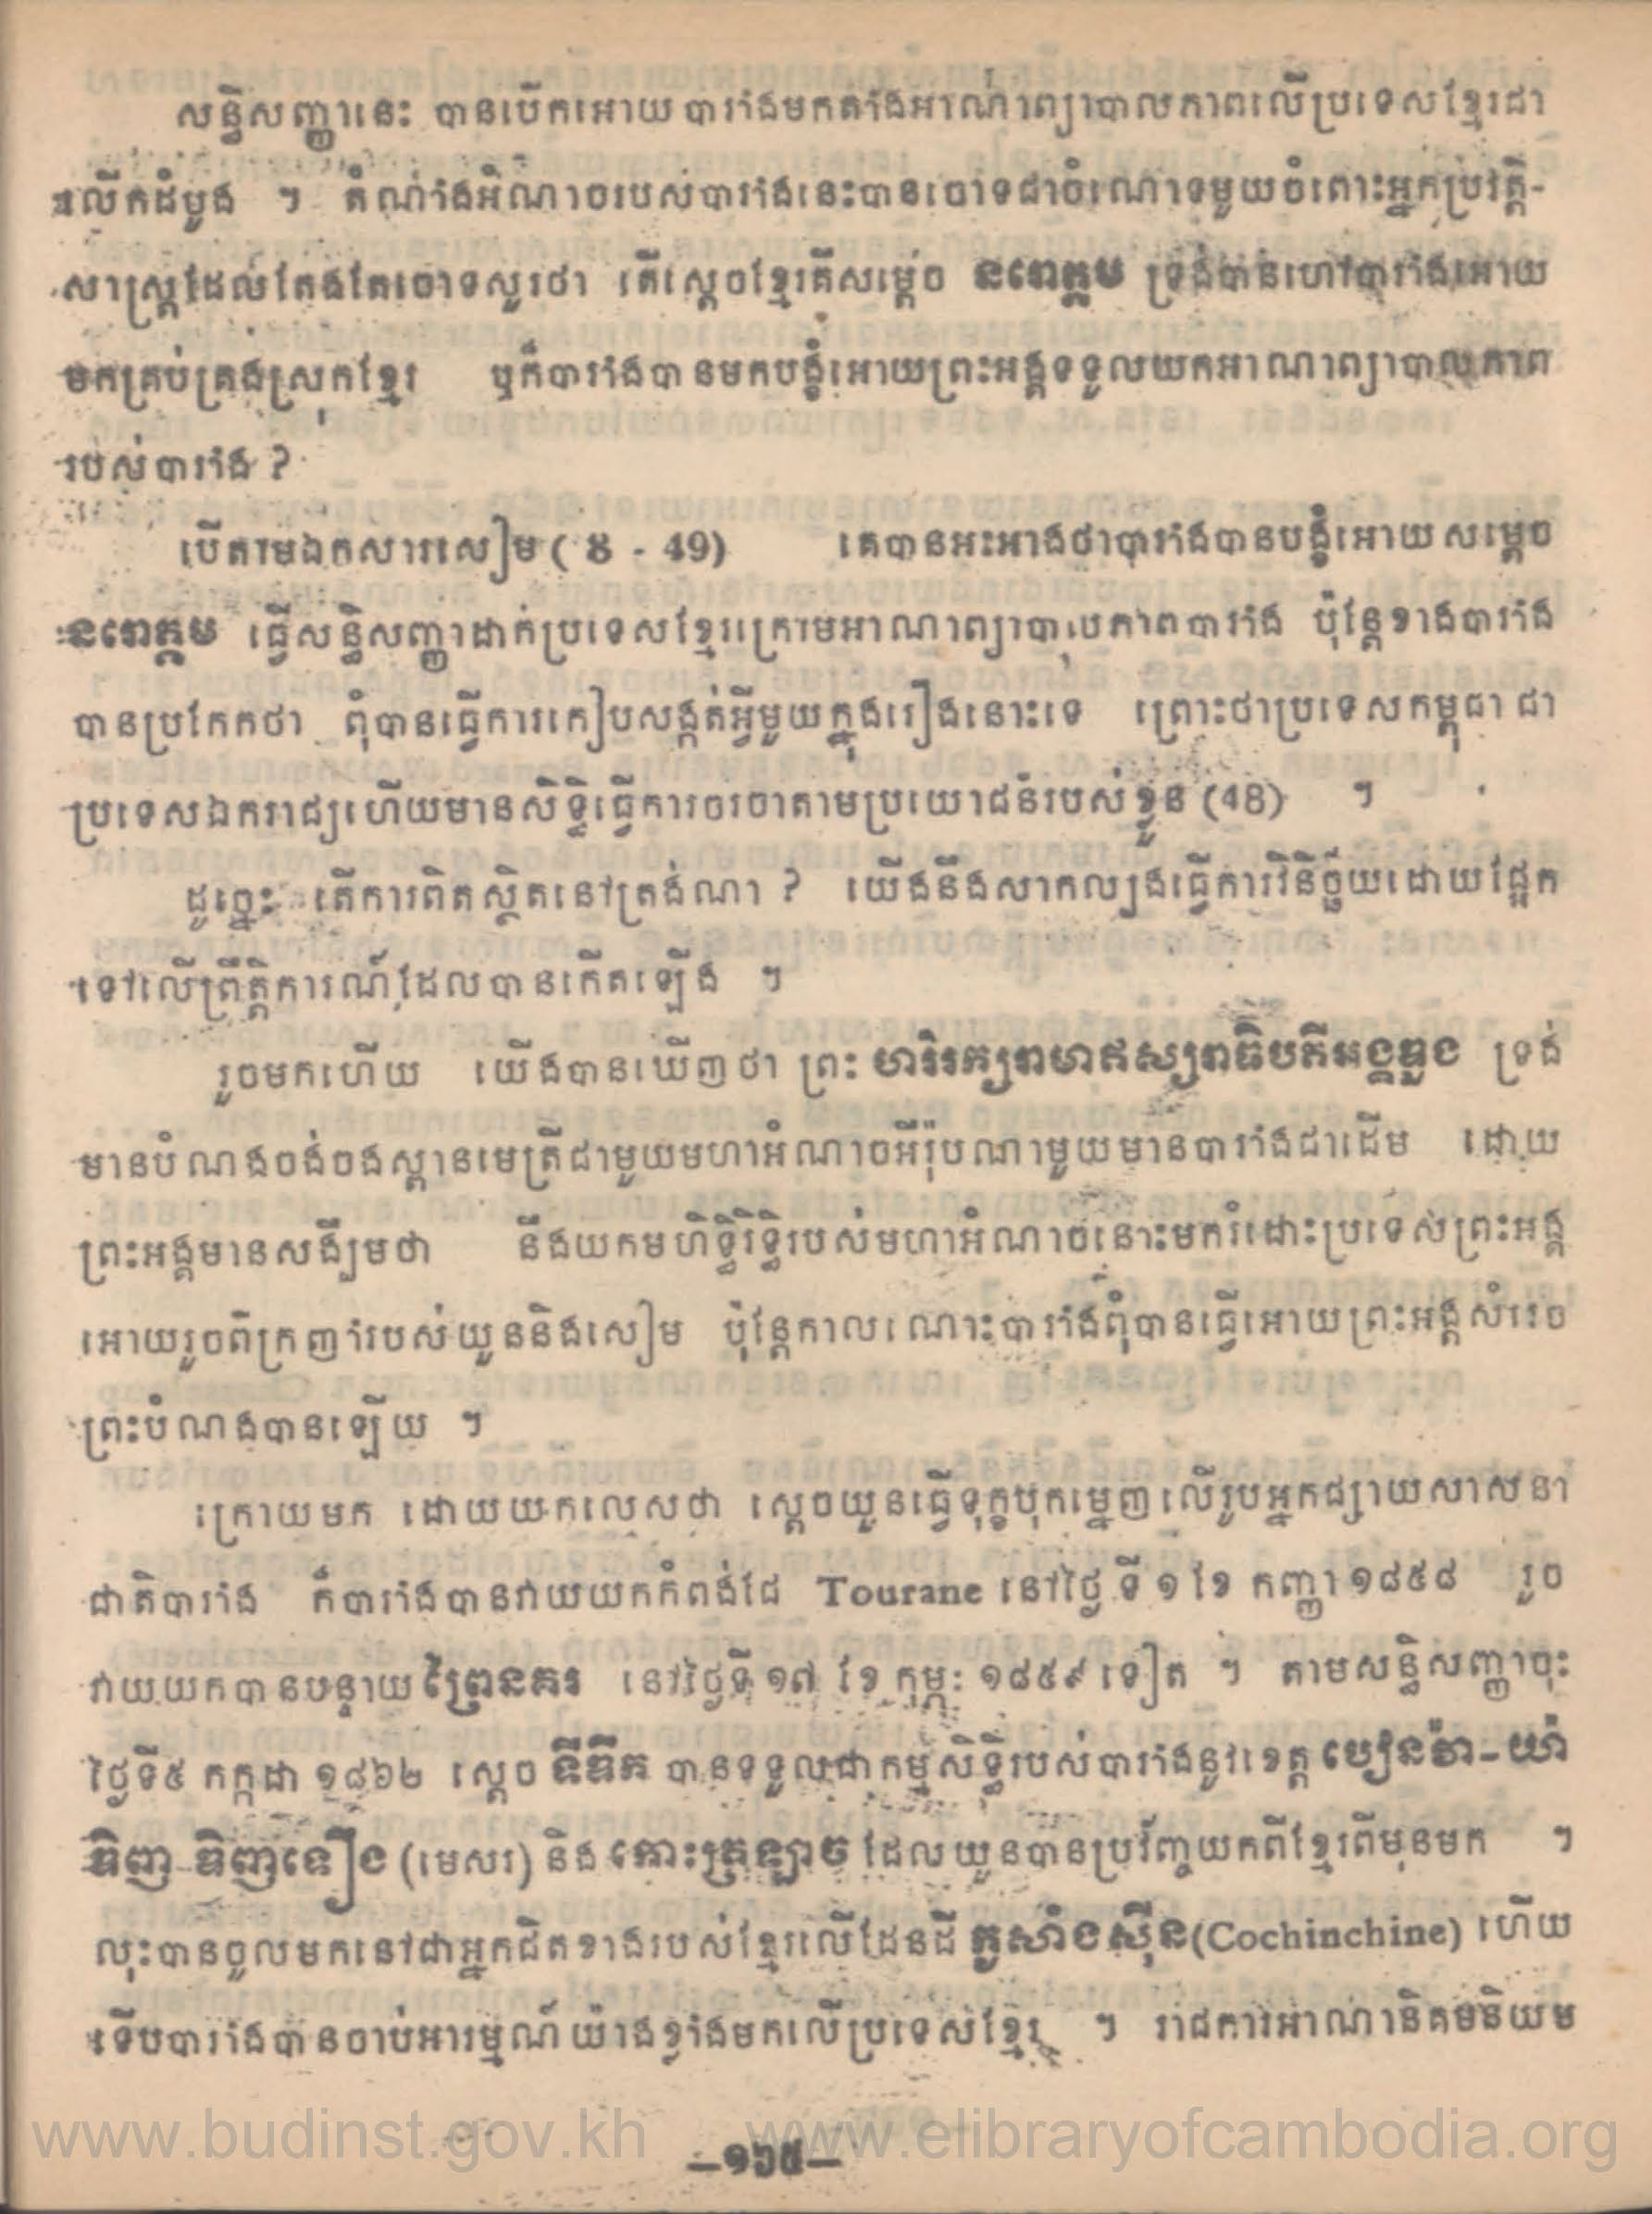 សន្ធិសញ្ញានេះ បានបើកអោយបារាំងមកតាំងអាណាព្យាបាលភាពលើប្រទេសខ្មែរជា
លើកដំបូង ។ តំណាំងអំណាចរបស់បារាំងនេះបានចោទជាចំណោទមួយចំពោះអ្នកប្រវត្តិ-
សាស្ត្រដែលតែងតែចោទសួរថា តើស្តេចខ្មែរគឺសម្តេច នរោត្តម ទ្រង់បានហៅបារាំងអោយ
មកគ្រប់គ្រងស្រុកខ្មែរ ឬក៏បារាំងបានមកបង្ខំអោយព្រះអង្គទទួលយកអាណាព្យាបាលភាព
របស់បារាំង ?
បើតាមឯកសារសៀម ( 8 - 49) គេបានអះអាងថាបារាំងបានបង្ខំអោយសម្តេច
នរោត្តម ធ្វើសន្ធិសញ្ញាដាក់ប្រទេសខ្មែរក្រោមអាណាព្យាបាលភាពបារាំង ប៉ុន្តែខាងបារាំង
បានប្រកែកថា ពុំបានធ្វើការកៀបសង្កត់អ្វីមួយក្នុងរឿងនោះទេ ព្រោះថាប្រទេសកម្ពុជា ជា
ប្រទេសឯករាជ្យហើយមានសិទ្ធិធ្វើការចរចាតាមប្រយោជន៍របស់ខ្លួន (48) ។
ដូច្នេះ តើការពិតស្ថិតនៅត្រង់ណា ? យើងនឹងសាកល្បងធ្វើការវិនិច្ឆ័យដោយផ្អែក
ទៅលើព្រឹត្តិការណ៍ដែលបានកើតឡើង ។
រួចមកហើយ យើងបានឃើញថា ព្រះ ហរិរក្សរាមាឥស្សរាធិបតីអង្គឌួង ទ្រង់
មានបំណងចង់ចងស្ពានមេត្រីជាមួយមហាអំណាចអឺរ៉ុបណាមួយមានបារាំងជាដើម ដោយ
ព្រះអង្គមានសង្ឃឹមថា នឹងយកមហិទ្ធិរិទ្ធិរបស់មហាអំណាចនោះមករំដោះប្រទេសព្រះអង្គ
អោយរួចពីក្រញាំរបស់យួននិងសៀម ប៉ុន្តែកាលណោះបារាំងពុំបានធ្វើអោយព្រះអង្គសំរេច
ព្រះបំណងបានឡើយ ។
ក្រោយមក ដោយយកលេសថា ស្តេចយួនធ្វើទុក្ខបុកម្នេញលើរូបអ្នកផ្សាយសាសនា
ជាតិបារាំង ក៏បារាំងបានវាយយកកំពង់ផែ Tourane នៅថ្ងៃ ទី ១ ខែ កញ្ញា ១៨៥៨ រួច
វាយយកបានបន្ទាយ ព្រៃនគរ នៅថ្ងៃទី ១៧ ខែ កុម្ភៈ ១៨៥៩ ទៀត ។ តាមសន្ធិសញ្ញាចុះ
ថ្ងៃទី៥ កក្កដា ១៨៦២ ស្តេច ទឺឌឹក បានទទួលជាកម្មសិទ្ធិរបស់បារាំងនូវខេត្ត បៀនវ៉ា-យ៉ា
ឌិញ ឌិញទឿង (មេសរ) និង កោះត្រឡាច ដែលយួនបានប្រវ័ញ្ចយកពីខ្មែរពីមុនមក ។
លុះបានចូលមកនៅជាអ្នកជិតខាងរបស់ខ្មែរលើដែនដី កូសាំងស៊ីន (Cochinchine) ហើយ
ទើបបារាំងបានចាប់អារម្មណ៍យ៉ាងខ្លាំងមកលើប្រទេសខ្មែរ ។ រាជការអាណានិគមនិយម
www.budinst.gov.kh www.elibraryofcambodia.org
—១៦៥—